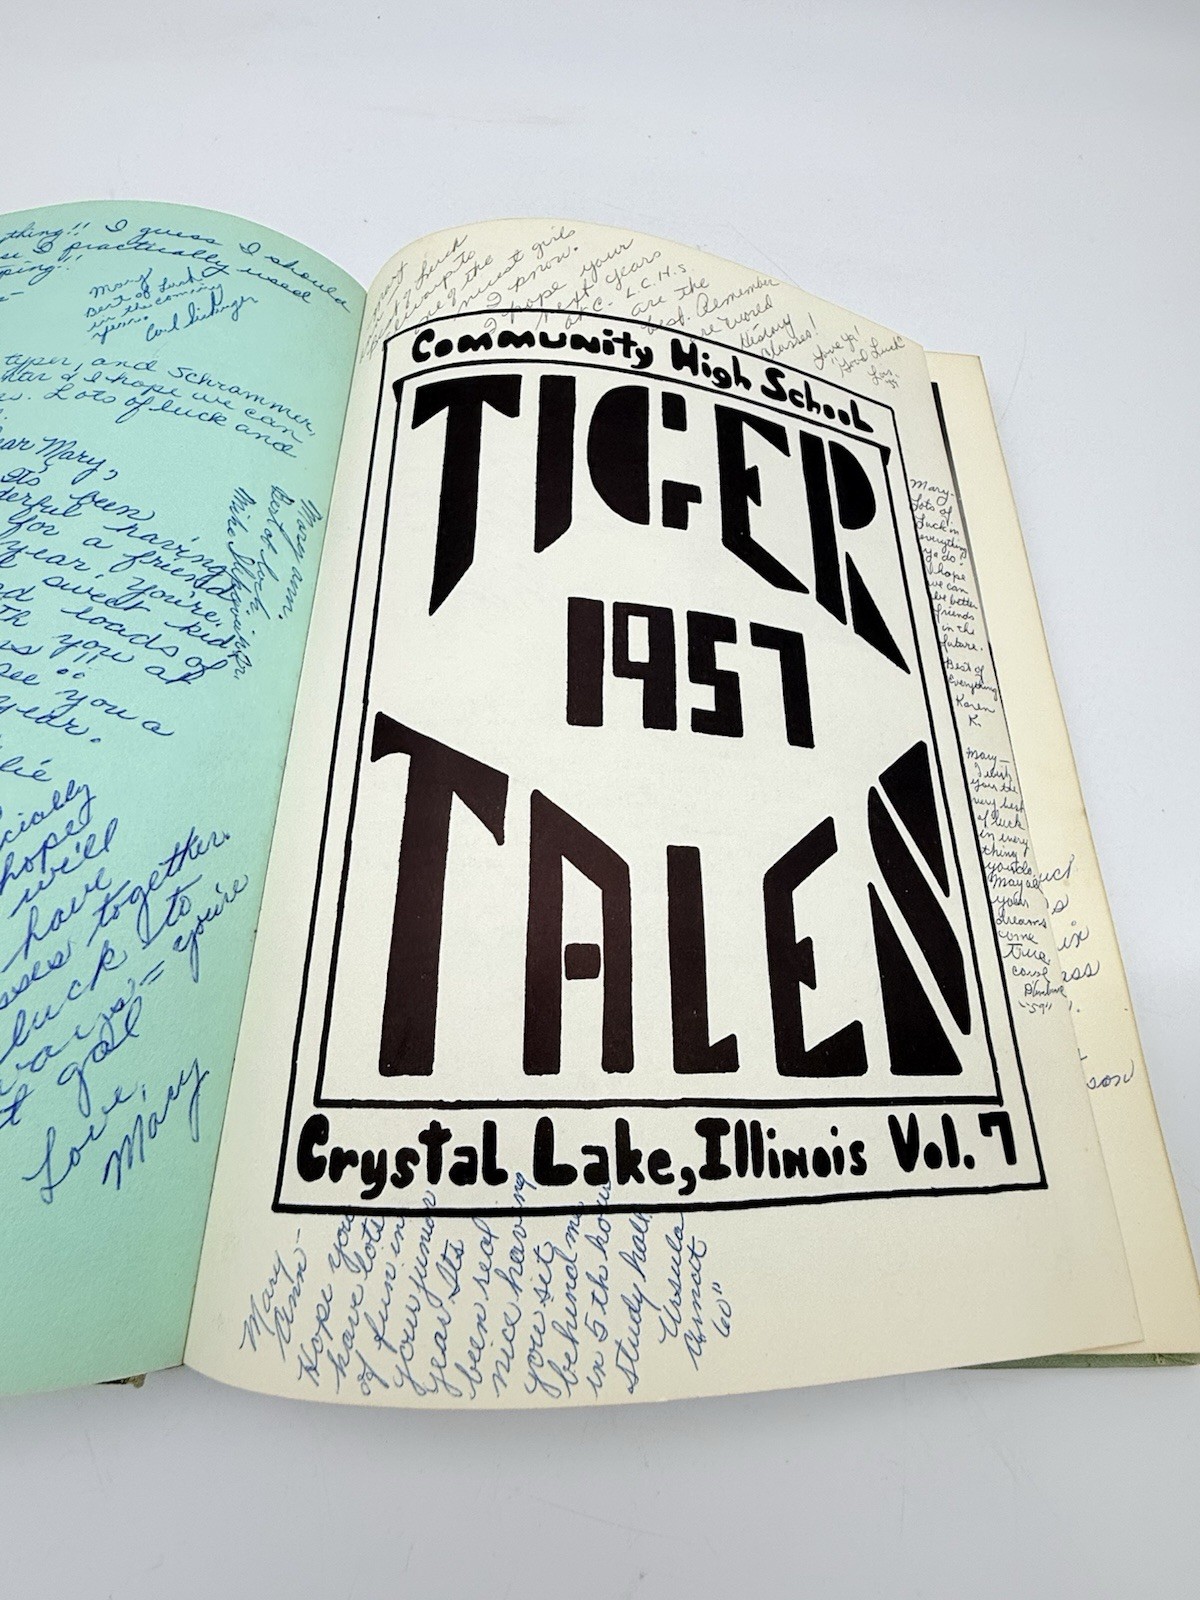 thing!! I guess I should
se I practically used
ping!!
Mary
Best of Luck
in the coming
years.
typer, and Schrammer,
hope we can
Lots of luck and
ear Mary,
Its been
derful having
for a friend
year. You're
sweet kid
loads of
you at
see you a
year.
cially
hope
we'll
have
sses together.
luck to
you're
gal
Love,
Mary
Mary Ann,
Best of luck!
Mike
luck
to
one of the
nicest girls
I know.
I hope your
next years
at C.L.C.H.S
are the
best. Remember
World
History
classes!
Love Ya!
"Good Luck"
Community High School
TIGER
1957
TALES
Crystal Lake, Illinois Vol. 7
Mary
Ann -
Hope you
have lots
of fun in
your junior
year. Its
been real
nice having
you sit
behind me
in 5th hour
study hall
Ursula
60"
Mary-
Lots of
Luck in
everything
ya do.
hope
we can
be better
friends
in the
future.
Best of
Everything
Karen
K.
Mary—
I wish
you the
very best
of luck
in every
thing
you do.
May all
your
dreams
come
true.
Carol
"59"
uck
in
ass
son